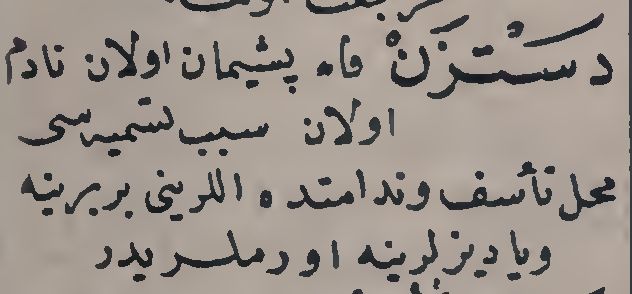 دَسْتْزَنْ فا پشیمان اولان نادم
اولان سبب تسمیه سی
محل تأسف وندامتده اللرینی بربرینه
ویا دیزلرینه اورملریدر